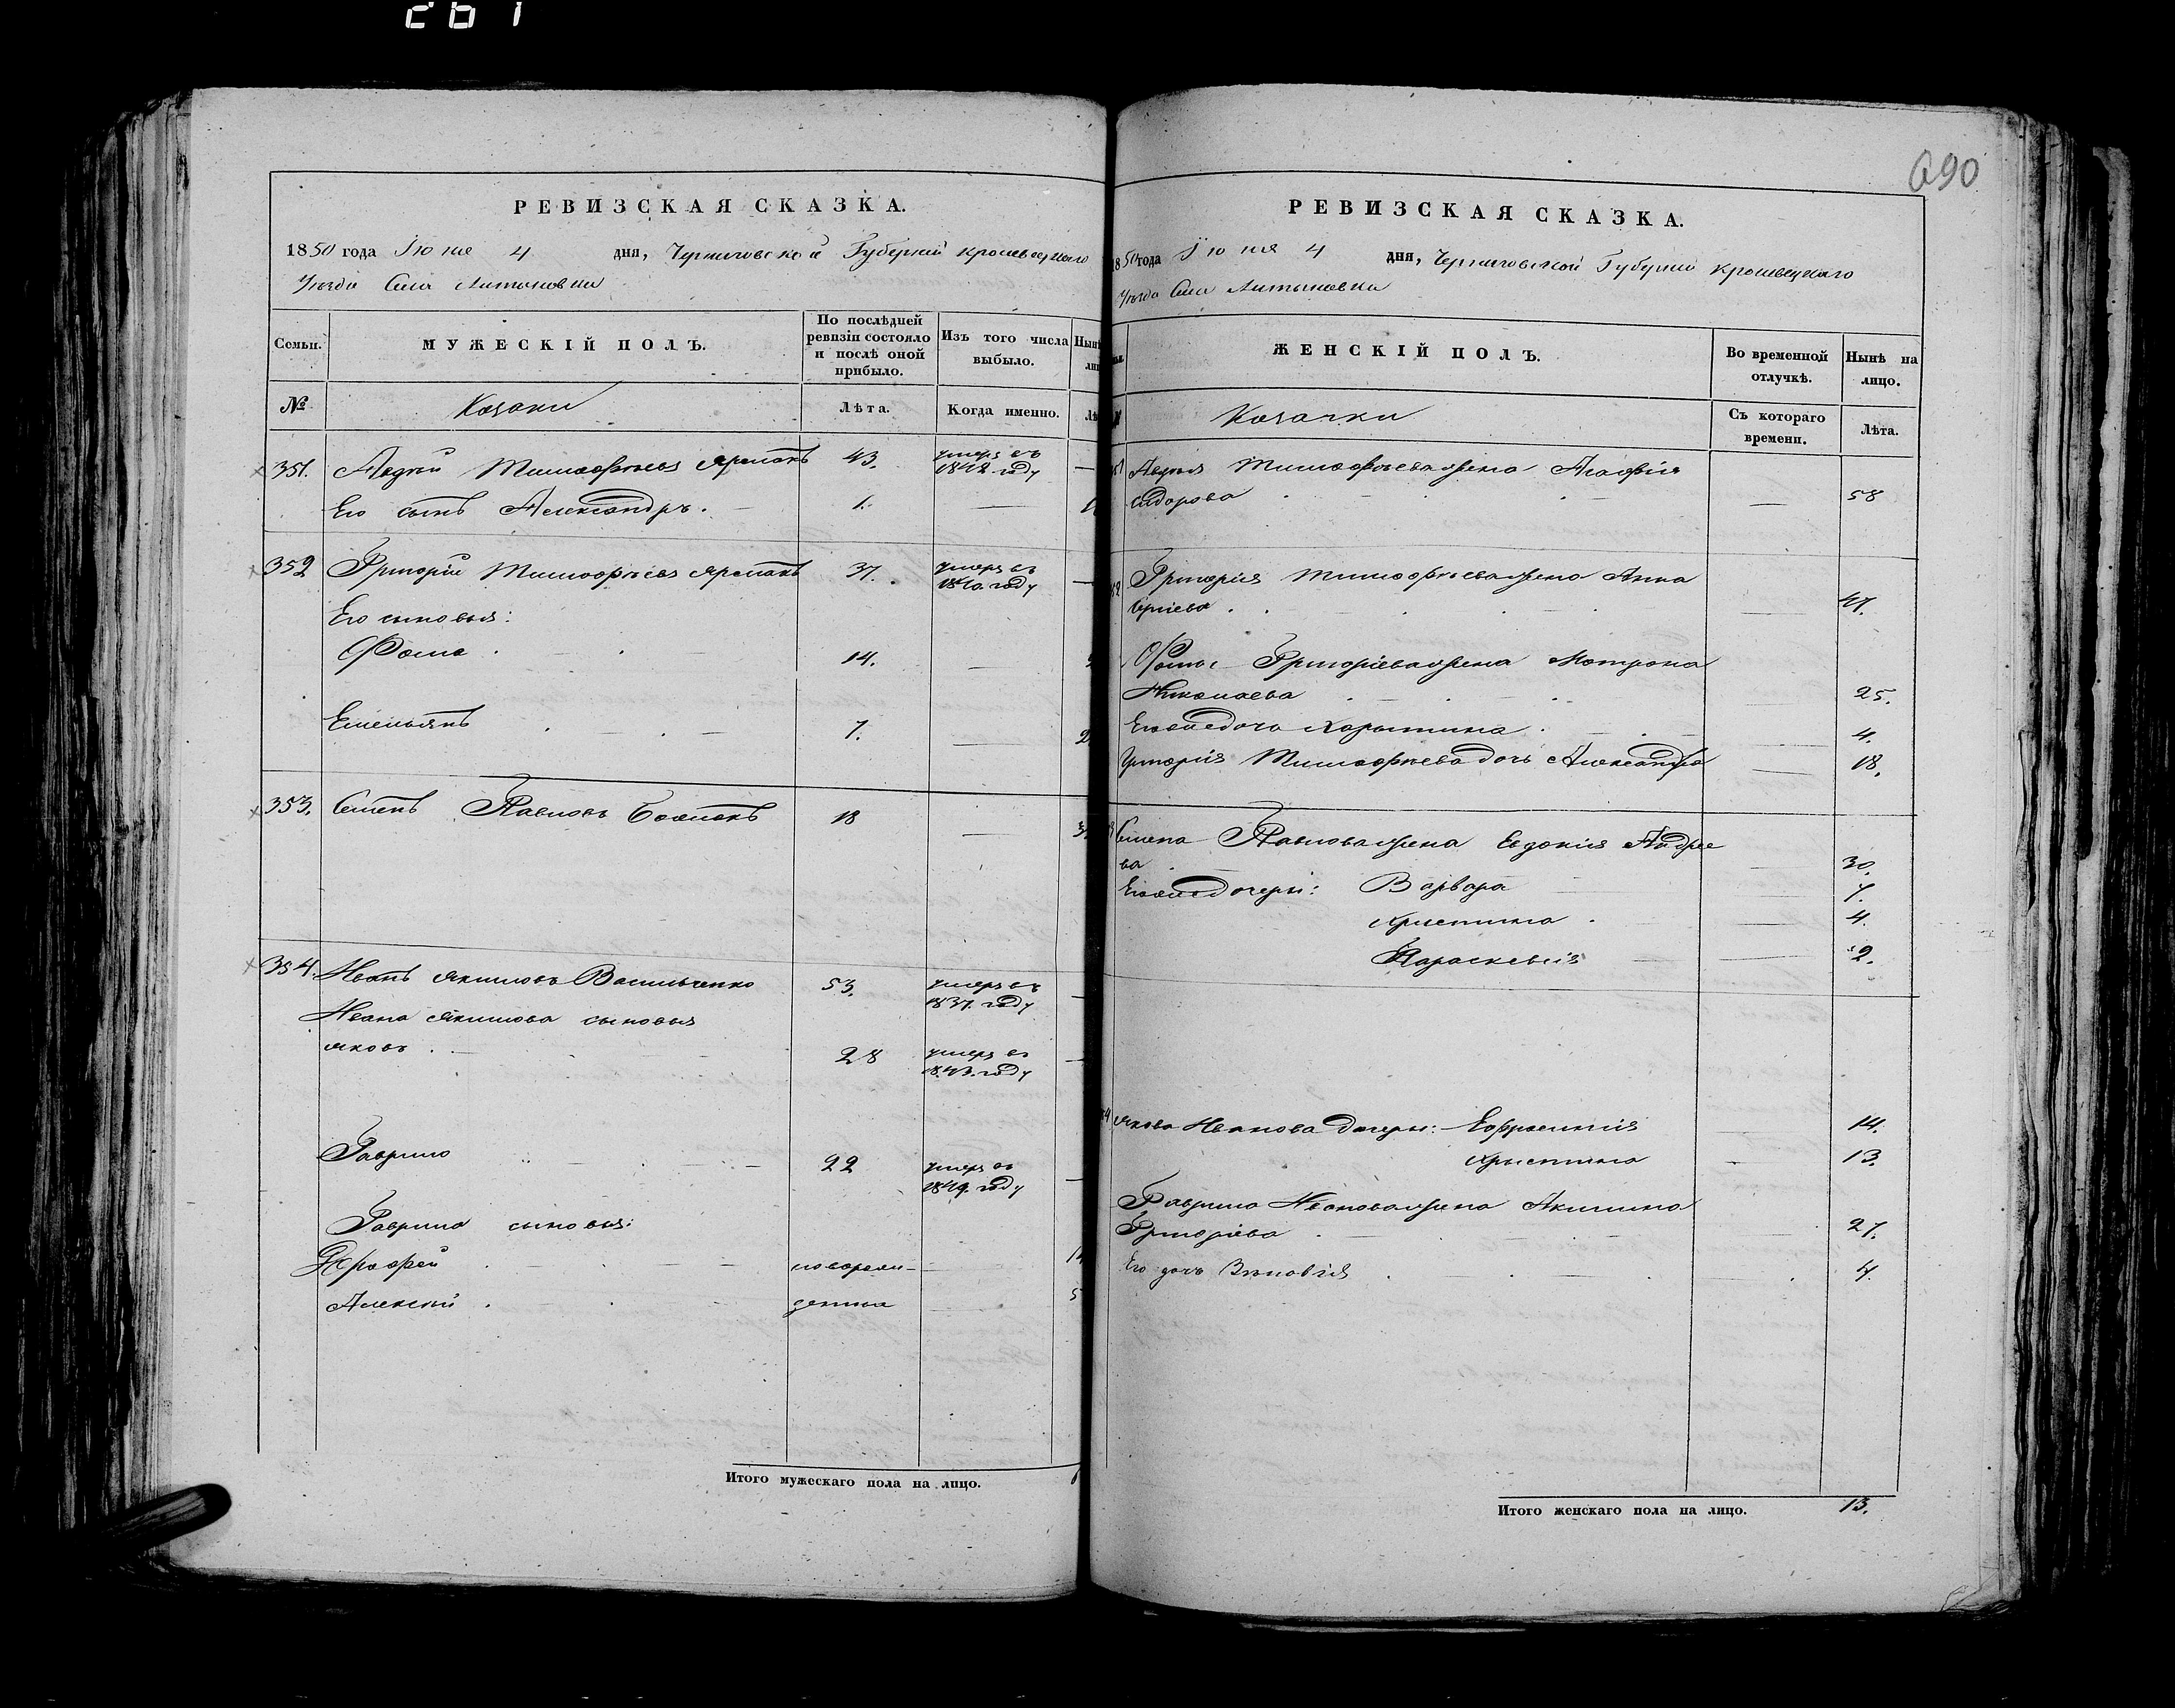 261
690
РЕВИЗСКАЯ СКАЗКА.
1850 года Іюня 4 дня, Черниговской Губерніи Кролевецкаго
уѣзда Села Литыновки
Семьи. МУЖЕСКІЙ ПОЛЪ. По послѣдней ревизіи состояло и послѣ оной прибыло. Изъ того числа выбыло.
№ Козаки Лѣта. Когда именно.
351. Авдѣй Тимофѣевъ Ярмакъ 43. умеръ въ 1848. году —
Его сынъ Александръ. 1. —
352 Григорій Тимофѣевъ Ярмакъ 37. умеръ въ 1840. году —
Его сыновья:
Фома 14. —
Емельянъ 7. —
353. Семенъ Павловъ 18 —
354. Иванъ Якимовъ Васильченко 53. умеръ въ 1837. году —
Ивана Якимова сыновья
Яковъ 28 умеръ въ 1843. году —
Гаврило 22 умеръ въ 1849. году —
Гаврила сыновья:
Ерофей новорож-
Алексѣй денны
Итого мужескаго пола на лицо.
РЕВИЗСКАЯ СКАЗКА.
1850 года Іюня 4 дня, Черниговской Губерніи Кролевецкаго
уѣзда Села Литыновки
ЖЕНСКІЙ ПОЛЪ. Во временной отлучкѣ. Нынѣ на лицо.
Козачки Съ котораго времени. Лѣта.
Авдѣя Тимофѣева жена Агафія
Сидорова — 58
Григорія Тимофѣева жена Анна
— 47.
Фомы Григоріева жена Мотрона
Николаева — 25.
Его же дочь Харытина — 4.
Григорія Тимофѣева дочь Александра — 18.
Семена Павлова жена Евдокія Андрее
ва — 30.
Его же дочери: Варвара — 7.
Христина — 4.
Параскевія — 2.
Якова Иванова дочери: Ефросинія — 14.
Христина — 13.
Гаврила Иванова жена Акилина
Григоріева — 27.
Его дочь Зѣновія 4.
Итого женскаго пола на лицо. 13.